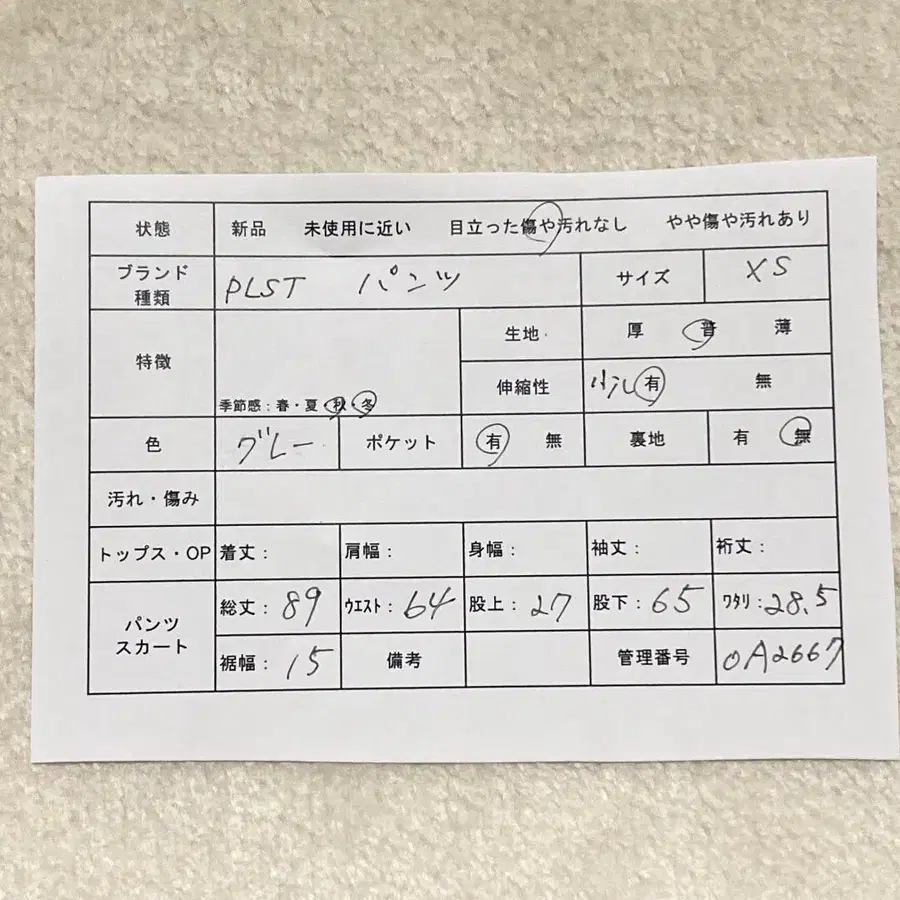 状態 新品 未使用に近い 目立った傷や汚れなし やや傷や汚れあり
ブランド 種類 PLST パンツ サイズ XS
特徴 生地 厚 普 薄
季節感:春・夏・秋・冬 伸縮性 少し 有 無
色 グレー ポケット 有 無 裏地 有 無
汚れ・傷み
トップス・OP 着丈: 肩幅: 身幅: 袖丈: 裄丈:
パンツ スカート 総丈:89 ウエスト:64 股上:27 股下:65 ワタリ:28.5
裾幅:15 備考 管理番号 OA2667